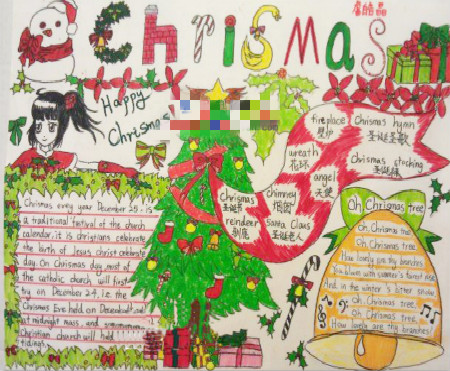 Christmas
Happy
Chrismas
fireplace
壁炉
Chrismas hymn
圣诞圣歌
wreath
花环
Chrismas stocking
圣诞袜
angel
天使
chrismas
圣诞节
chimney
烟囱
reindeer
驯鹿
santa Claus
圣诞老人
Chrismas every year December 25, is
a traditional festival of the church
calendar, it is christians celebrate
the birth of Jesus christ celebrate
day. On Chrismas day, most of
the catholic church will first
try on December 24, i.e. the
Chrismas Eve held on December
at midnight mass, and
Christian church will held
tidings.
Oh Chrismas tree
Oh, Chrismas tree
Oh Chrismas tree,
How lovely are thy branches
And in the winter's
Oh Chrismas tree,
Oh Chrismas tree,
How lovely are thy branches!